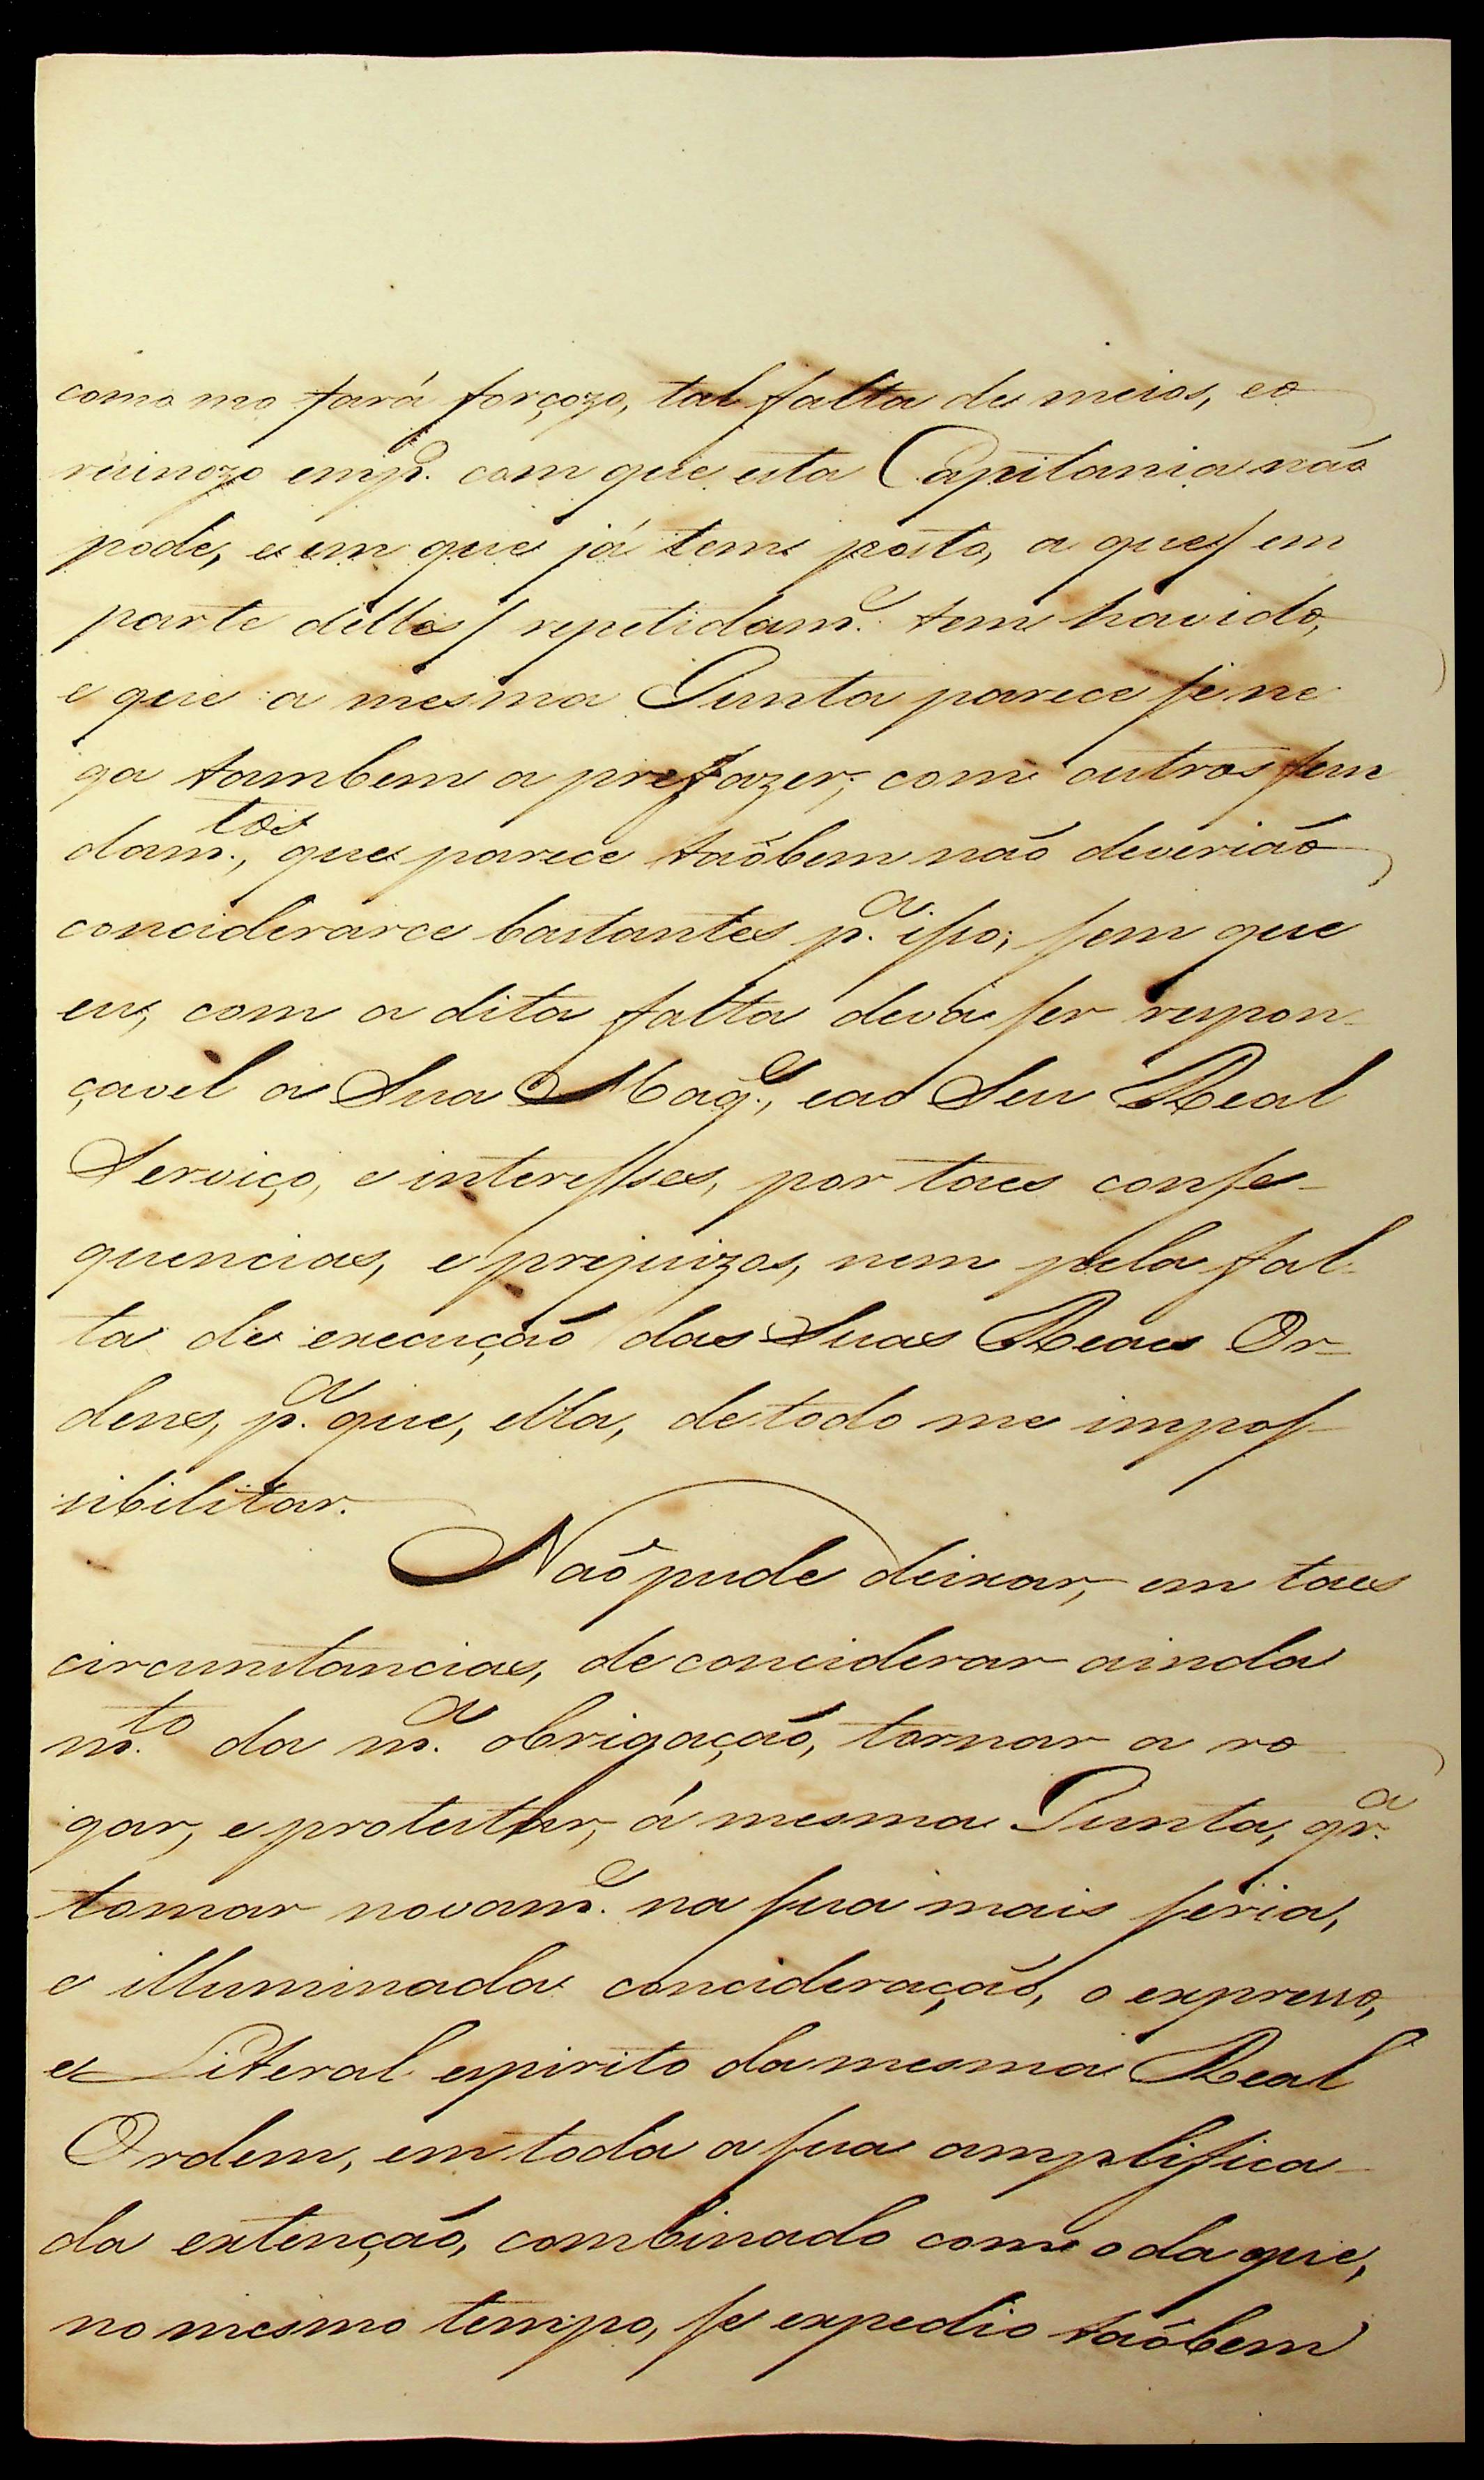 como mo fará forçozo, tal falta de meios, e o
ruinozo emp.o com que esta Capitania não
pode, e em que já tem posto, a que/ em
parte delles/ repetidam.e tem havido,
e que a mesma Junta parece se ne
ga tambem a prefazer; com outros fun
dam.tos, que parece taõbem não deverião
conciderarce bastantes p.a isso; sem que
eu, com a dita falta deva ser respon-
çavel a Sua Mag.e, e ao Seu Real
Serviço, e interesses, por taes conse-
quencias, e prejuizos, nem pela fal-
ta de execução das Suas Reaes Or-
dens, p.a que, ella, de todo me impos-
sibilitar.
Naõ pude deixar, em taes
circunstancias, de conciderar ainda
m.to da m.a obrigação, tornar a ro-
gar, e protestar, á mesma Junta, qr.a
tomar novam.e na sua mais séria,
e illuminada concideração, o expresso,
e Literal espirito da mesma Real
Ordem, em toda a sua amplifica-
da extenção, combinado com o da que,
no mesmo tempo, se expedio taõbem